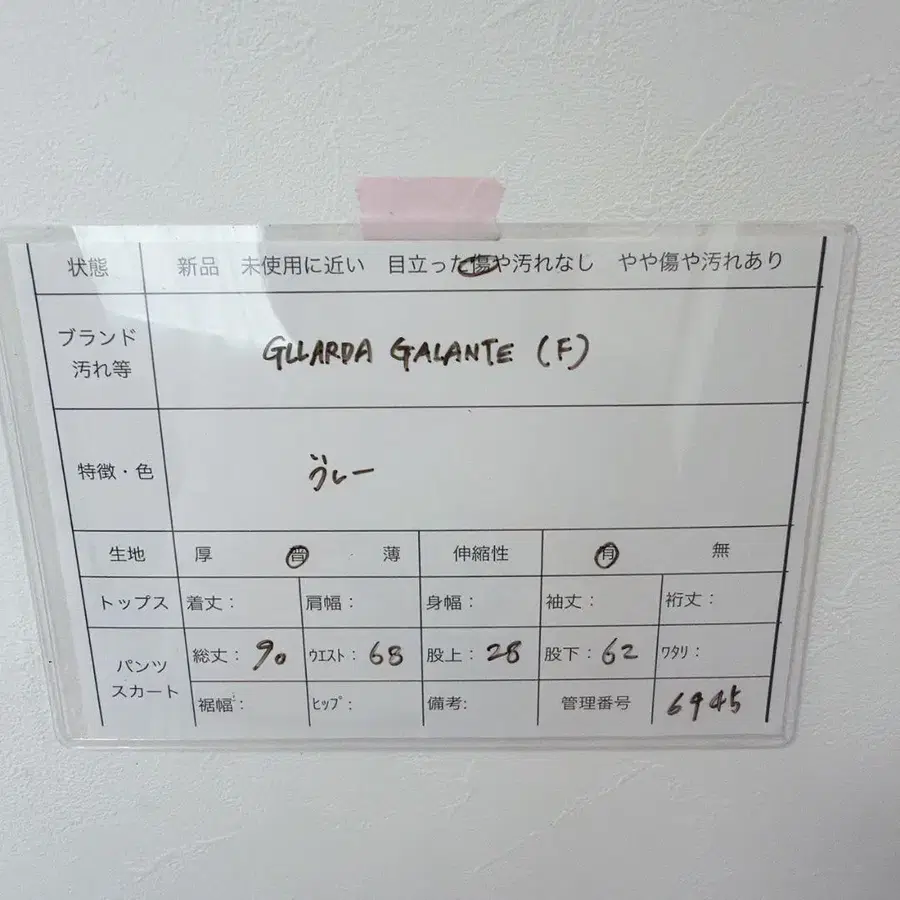 状態 新品 未使用に近い 目立った傷や汚れなし やや傷や汚れあり
ブランド
汚れ等
GLLARDA GALANTE (F)
特徴・色 グレー
生地 厚 普 薄 伸縮性 有 無
トップス 着丈: 肩幅: 身幅: 袖丈: 裄丈:
パンツ
スカート
総丈: 90 ウエスト: 68 股上: 28 股下: 62 ワタリ:
裾幅: ヒップ: 備考: 管理番号 6945